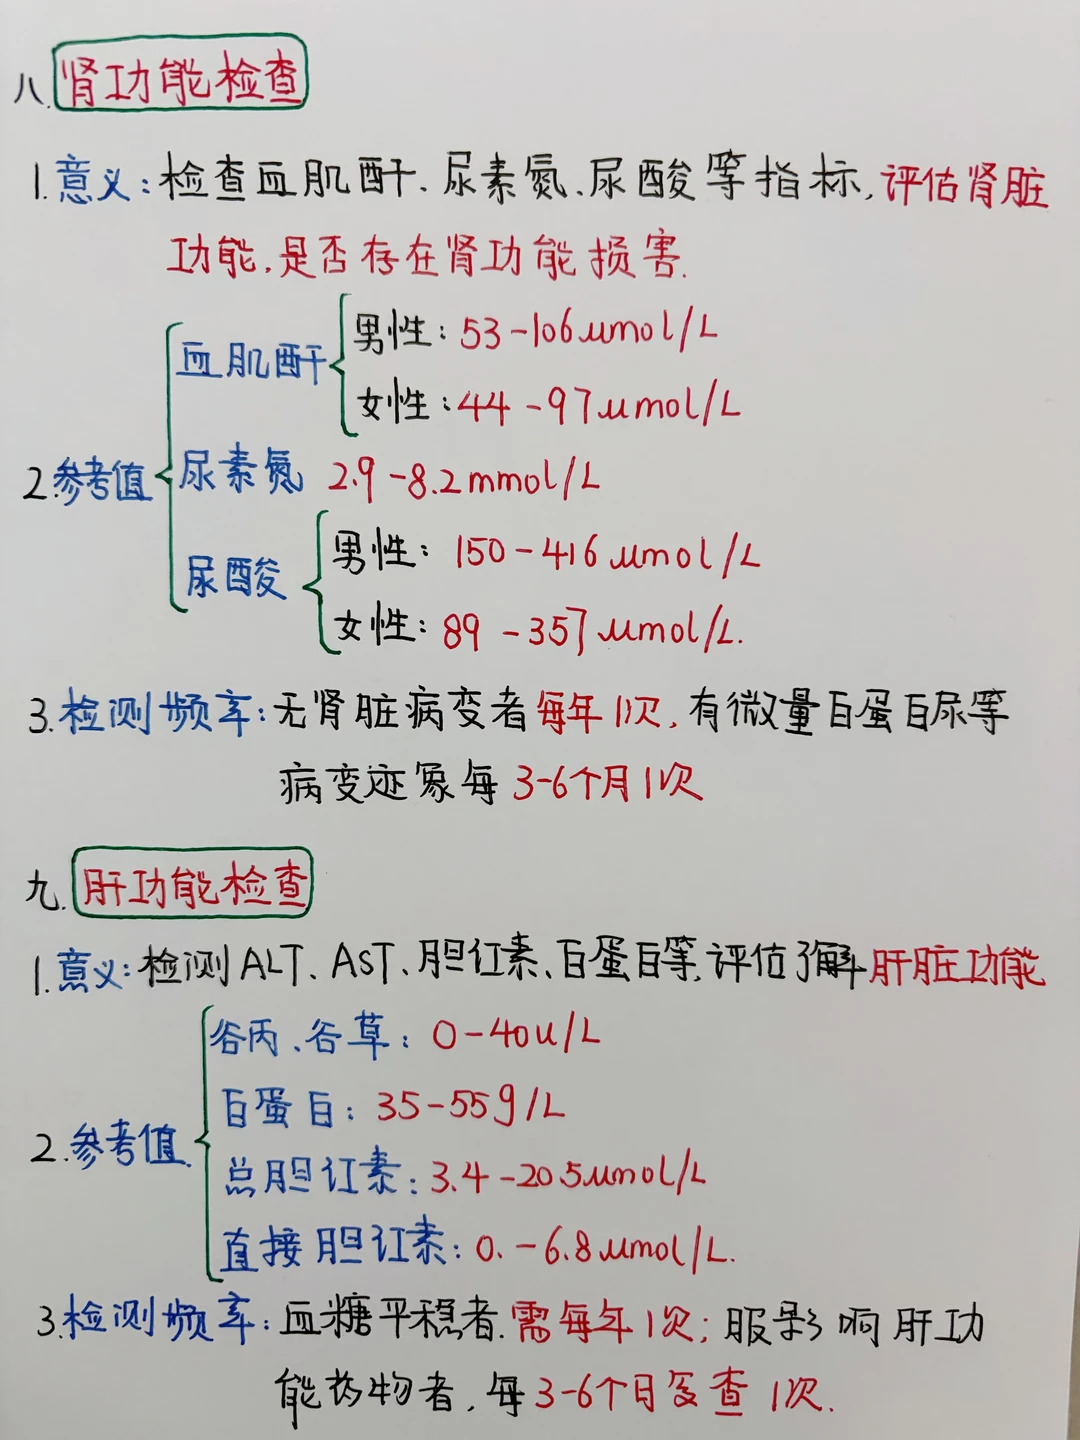 八.肾功能检查
1.意义:检查血肌酐、尿素氮、尿酸等指标,评估肾脏
功能,是否存在肾功能损害.
男性:53-106μmol/L
血肌酐
女性:44-97μmol/L
2.参考值
尿素氮 2.9-8.2mmol/L
男性:150-416μmol/L
尿酸
女性:89-357μmol/L.
3.检测频率:无肾脏病变者每年1次,有微量白蛋白尿等
病变迹象每3-6个月1次
九.肝功能检查
1.意义:检测ALT、AST、胆红素、白蛋白等,评估了解肝脏功能
谷丙、谷草:0-40u/L
白蛋白:35-55g/L
2.参考值.
总胆红素:3.4-20.5μmol/L
直接胆红素:0.-6.8μmol/L.
3.检测频率:血糖平稳者.需每年1次;服影响肝功
能药物者,每3-6个月复查1次.